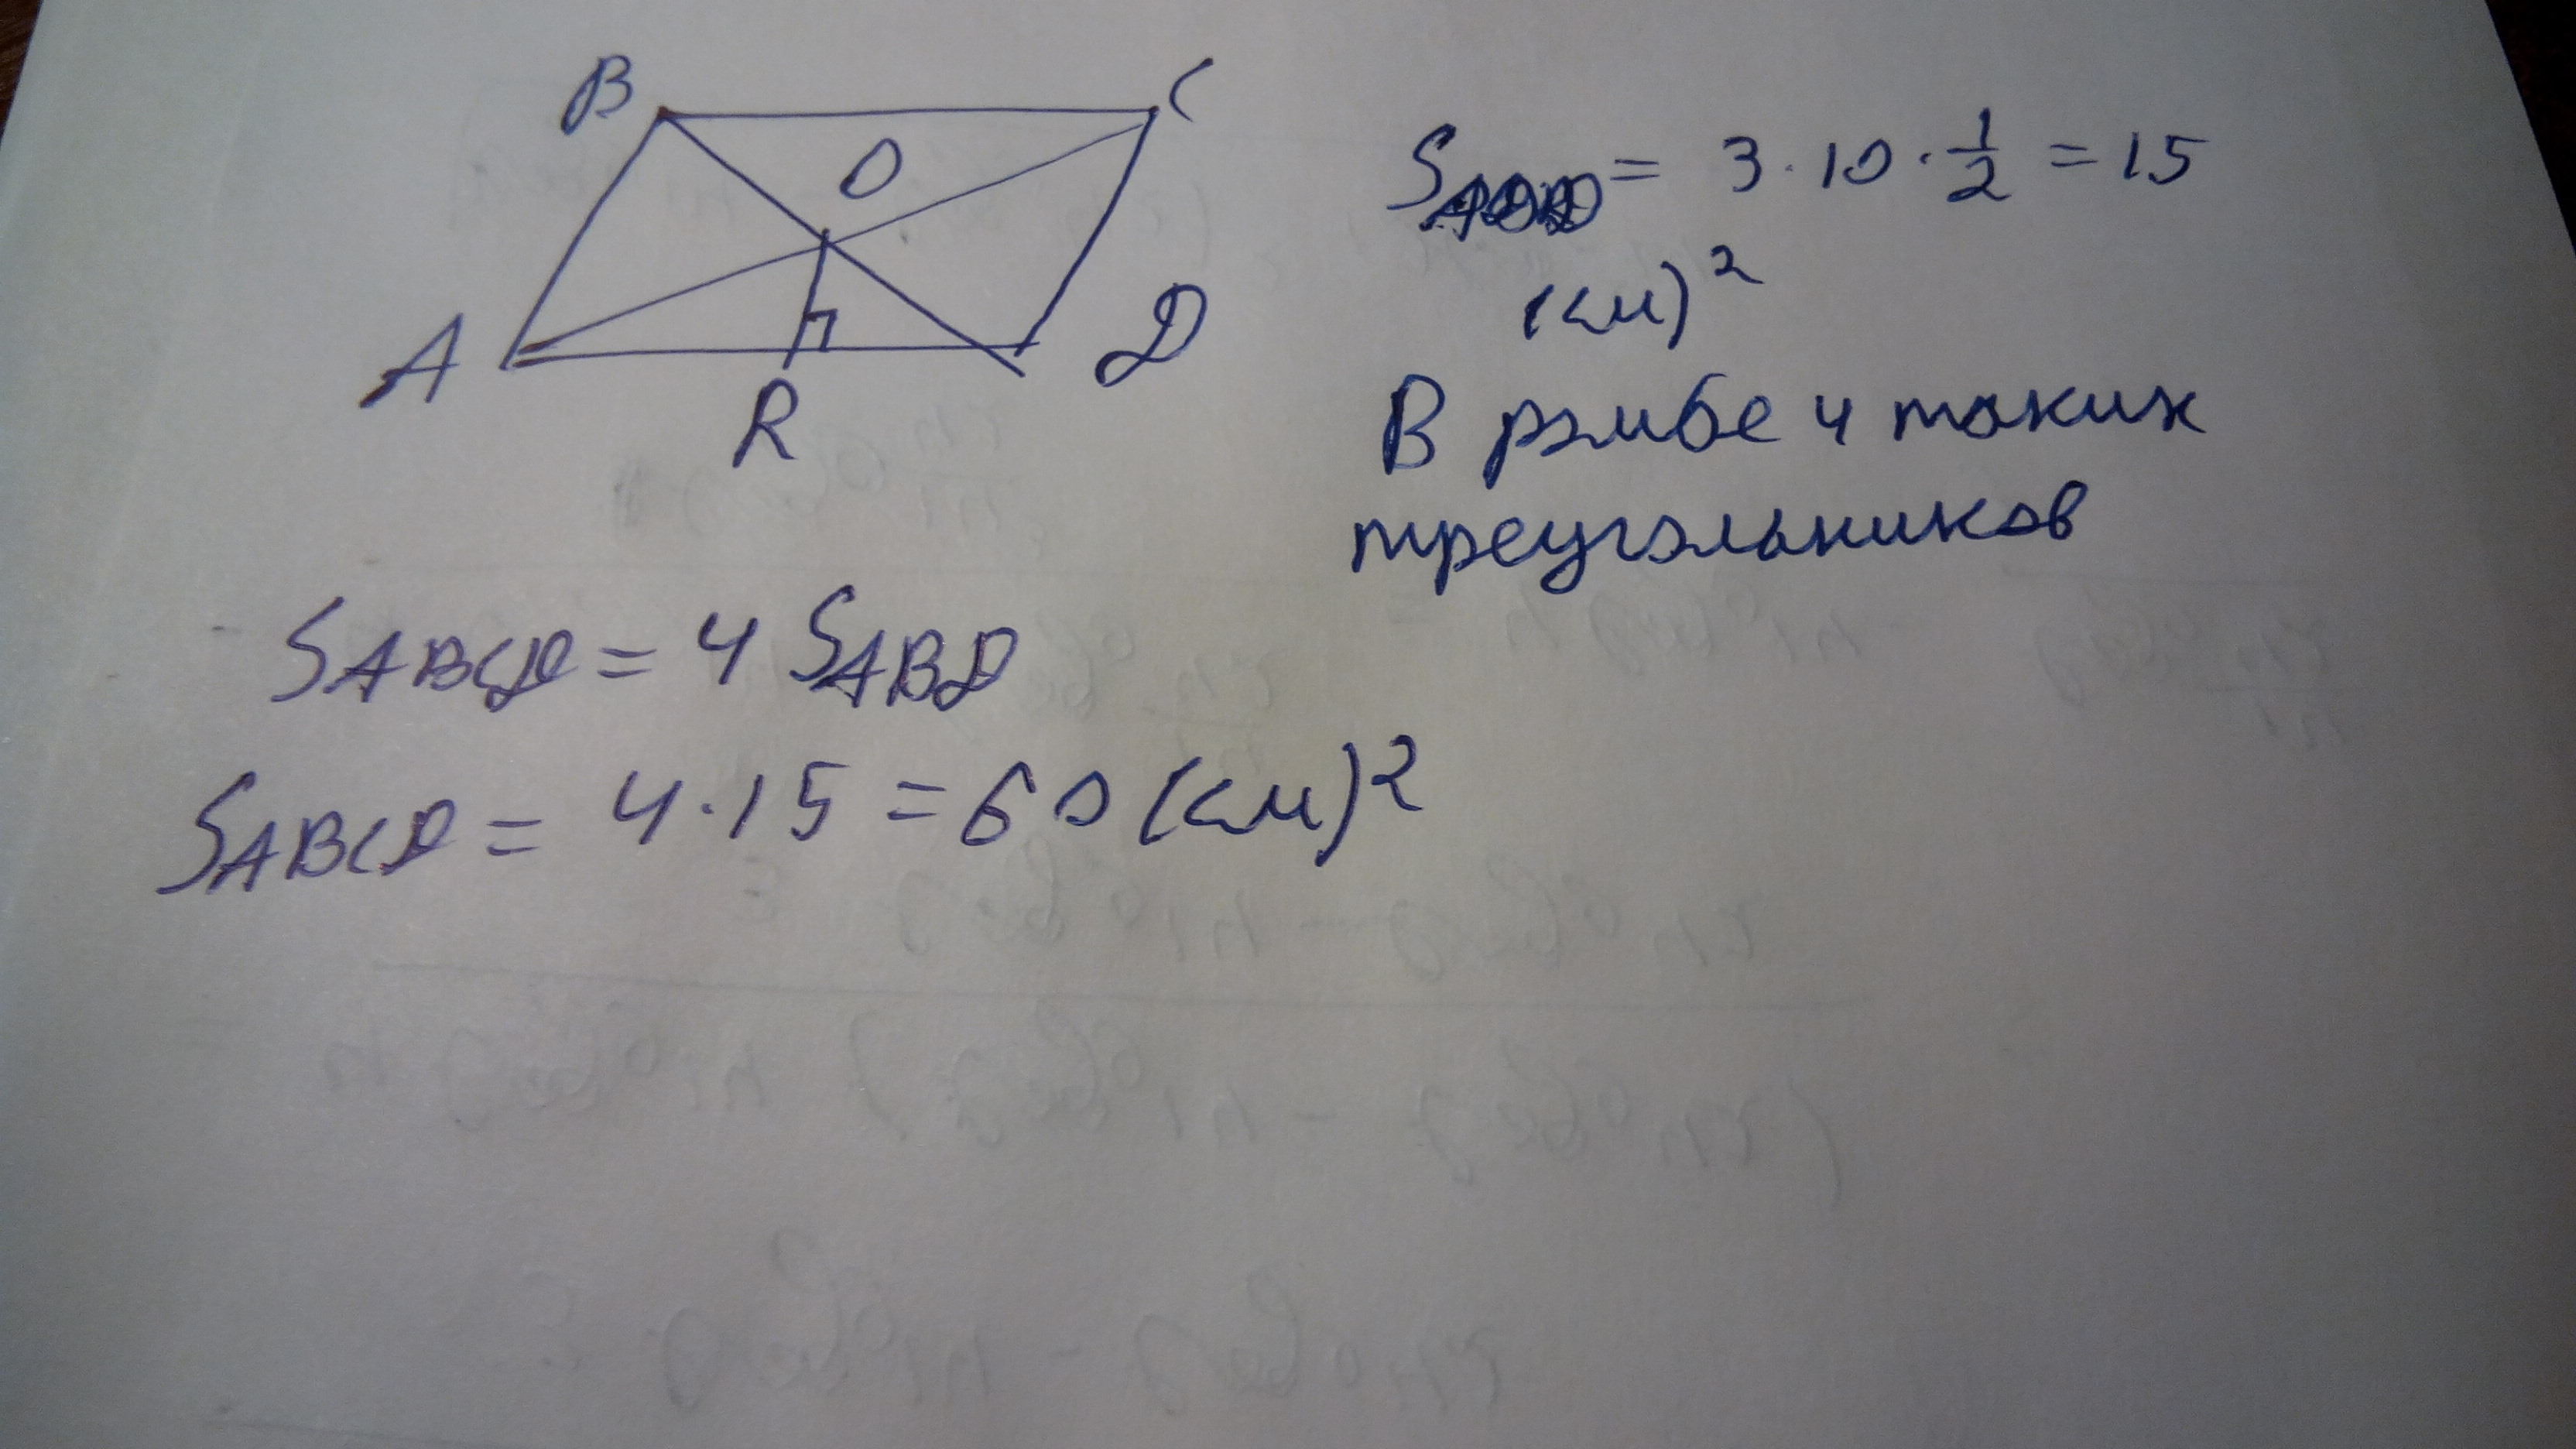 B
C
O
A
D
R
S = 3 · 10 · 1/2 = 15
(см)²
В ромбе 4 таких
треугольников
S_ABCD = 4 S_ABD
S_ABCD = 4 · 15 = 60 (см)²